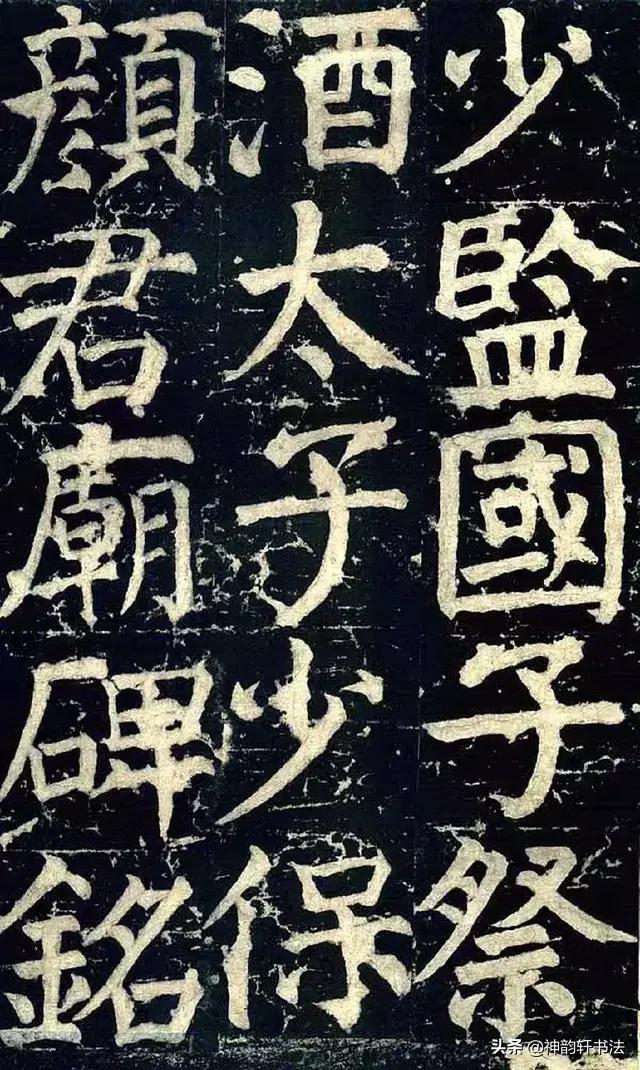 少監國子祭
酒太子少保
顏君廟碑銘
头条 @神韵轩书法